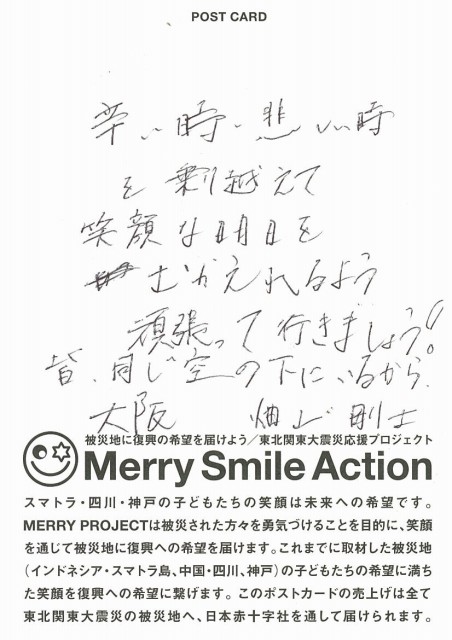 POST CARD
辛い時・悲しい時
を乗り越えて
笑顔な明日を
むかえれるよう
頑張って行きましょう!
皆、同じ空の下にいるから。
大阪 畑山 剛士
被災地に復興の希望を届けよう/東北関東大震災応援プロジェクト
Merry Smile Action
スマトラ・四川・神戸の子どもたちの笑顔は未来への希望です。
MERRY PROJECTは被災された方々を勇気づけることを目的に、笑顔
を通じて被災地に復興への希望を届けます。これまでに取材した被災地
(インドネシア・スマトラ島、中国・四川、神戸)の子どもたちの希望に満ち
た笑顔を復興への希望に繋げます。このポストカードの売上げは全て
東北関東大震災の被災地へ、日本赤十字社を通して届けられます。